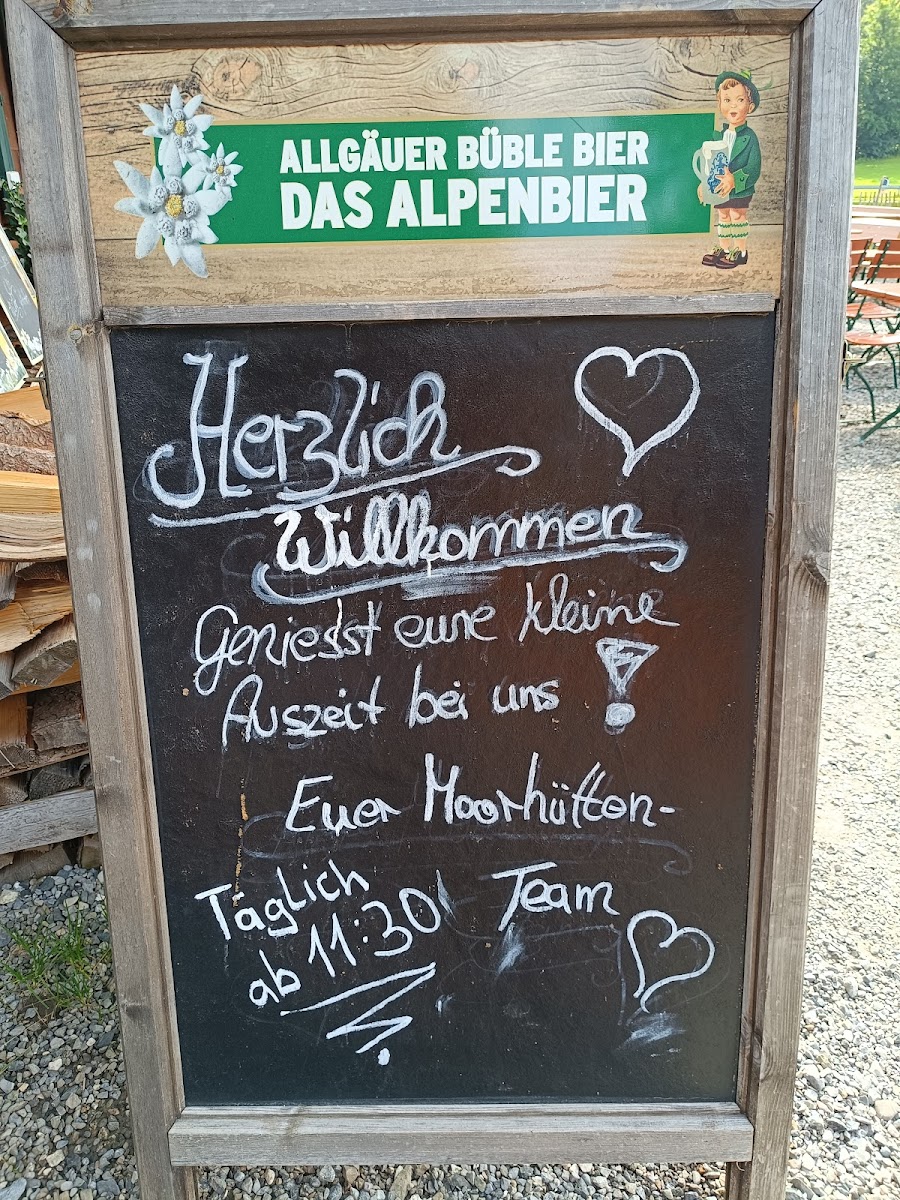 ALLGÄUER BÜBLE BIER
DAS ALPENBIER
Herzlich
Willkommen
Geniesst eure kleine
Auszeit bei uns !
Euer Moorhütten-
Team
Täglich
ab 11:30